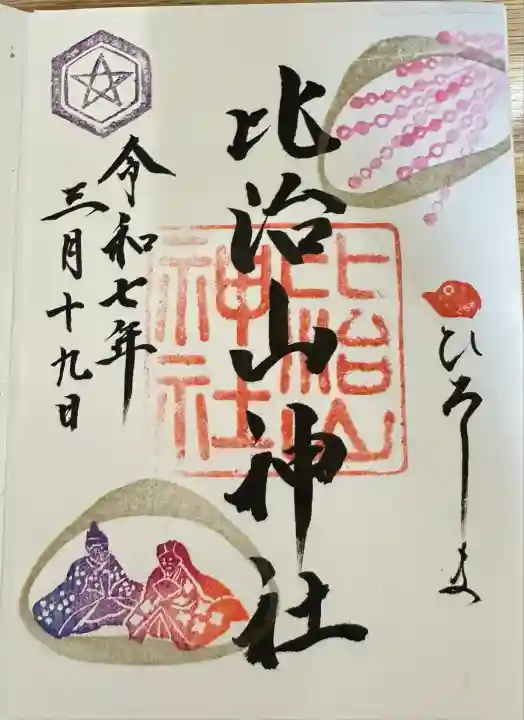 ひろしま
比治山神社
比治山
神社
令和七年
三月十九日